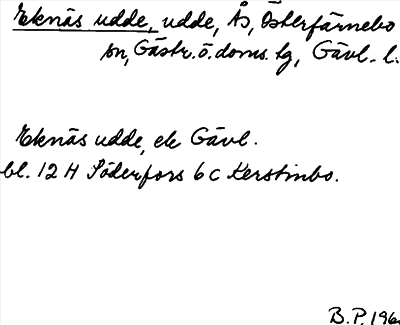 Eknäs udde, udde, Ås, Österfärnebo
sn, Gästr. ö. doms. tg, Gävl. l.
Eknäs udde, ek Gävl.
bl. 12 H Söderfors 6 c Kerstinbo.
B.P. 196